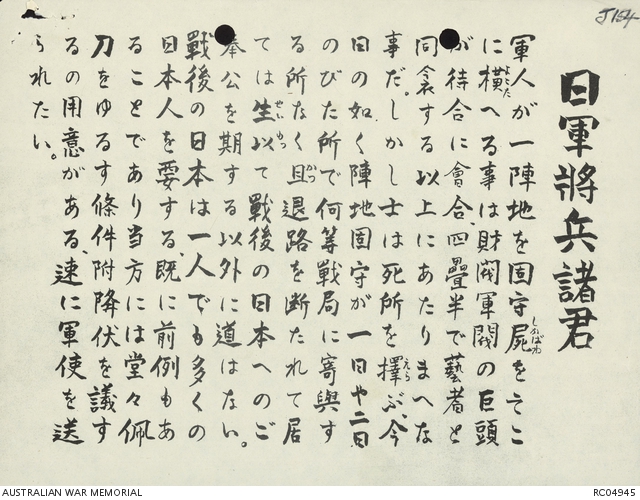 J154
日軍將兵諸君
軍人が一陣地を固守屍をそこ
しかばね
に横へる事は財閥軍閥の巨頭
よこた
が待合に會合、四疊半で藝者と
同衾する以上にあたりまへな
事だ。しかし士は死所を擇ぶ、今
えら
日の如く陣地固守が一日や二日
のびた所で何等戰局に寄與す
る所なく且退路を断たれて居
かつ
ては生以て戰後の日本へのご
せいもつ
奉公を期する以外に道はない。
戰後の日本は一人でも多くの
日本人を要する、既に前例もあ
ることであり当方には堂々佩
刀をゆるす條件附降伏を議す
るの用意がある、速に軍使を送
られたい。
AUSTRALIAN WAR MEMORIAL
RC04945